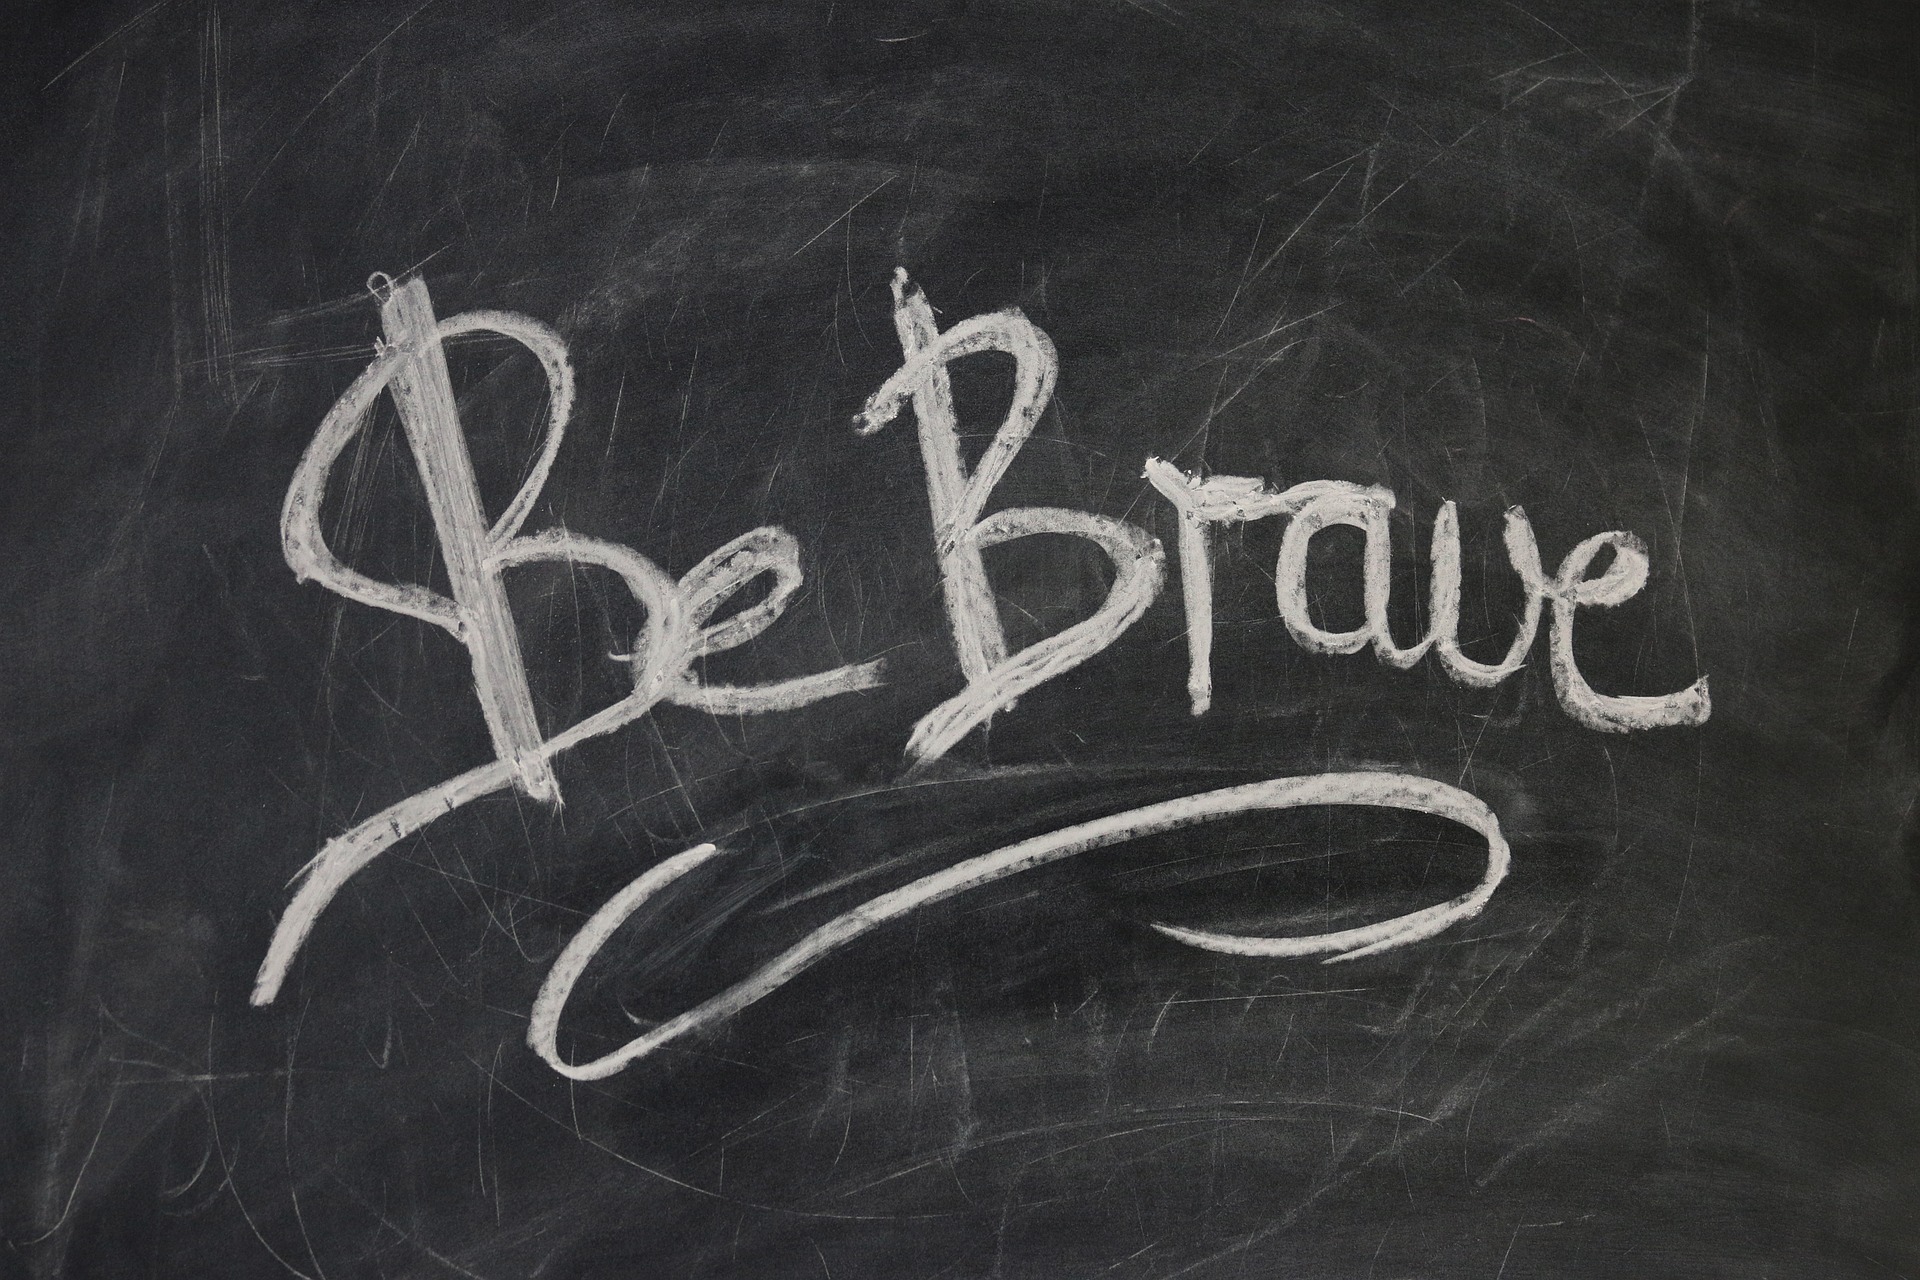 Be Brave